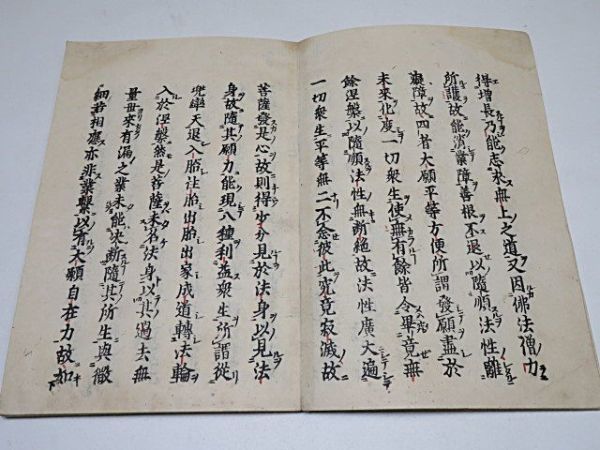 得增長乃能志求無上之道又因佛法僧力
所護故能消業障善根不退以隨順法性離
癡障故四者大願平等方便所謂發願盡於
未來化度一切衆生使無有餘皆令畢竟無
餘涅槃以隨順法性無斷絕故法性廣大遍
一切衆生平等無二不念彼此究竟寂滅故
菩薩發是心故則得少分見於法身以見法
身故隨其願力能現八種利益衆生所謂從
兜率天退入胎住胎出胎出家成道轉法輪
入於涅槃然是菩薩未名法身以其過去無
量世來有漏之業未能決斷隨其所生與微
細苦相應亦非業繫以有大願自在力故如